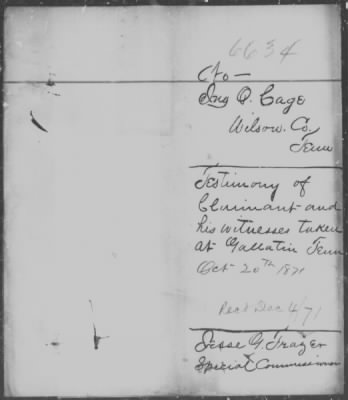 6634
Cto—
Jno Q. Cage
Wilson. Co.
Tenn
Testimony of
Claimant and
his witnesses taken
at Gallatin Tenn
Oct 20th 1871
Recd Dec 4/71
Jesse G. Frazer
Special Commissioner